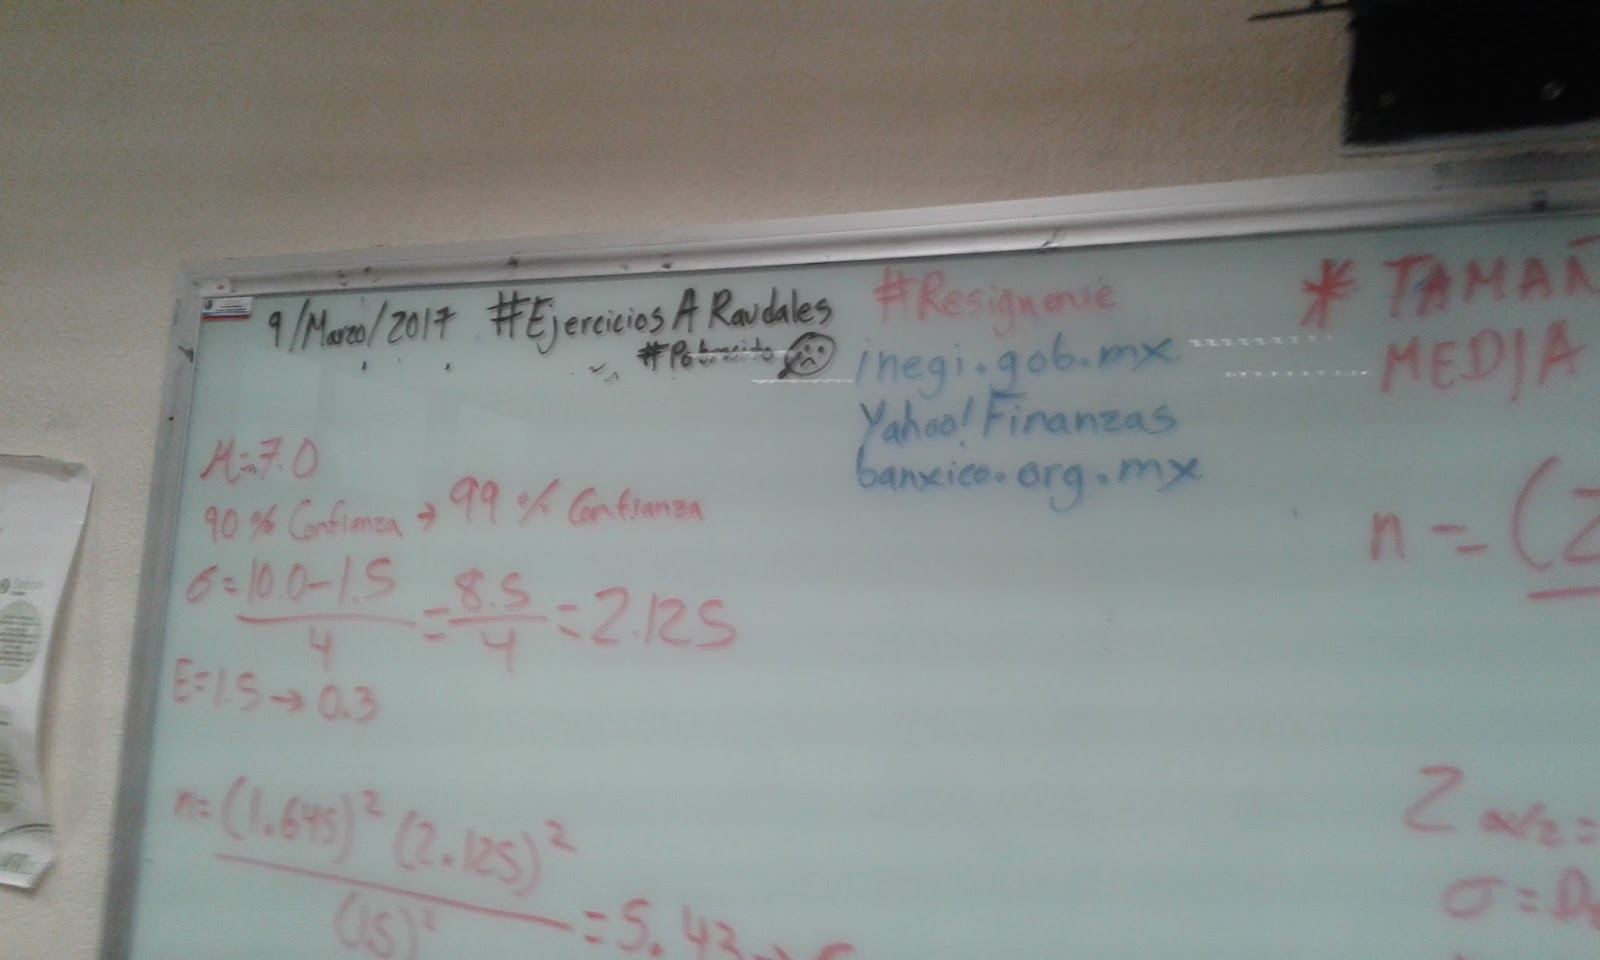 9/Marzo/2017 #EjerciciosARaudales
#Pobrecito
#Resignarme
inegi.gob.mx
Yahoo! Finanzas
banxico.org.mx
* TAMAÑ
MEDIA
μ=7.0
90% Confianza → 99% Confianza
σ = 10.0-1.5 / 4 = 8.5 / 4 = 2.125
E=1.5 → 0.3
n= (1.645)² (2.125)² / (1.5)² = 5.43 →
n = (Z
Z α/2 =
σ = D